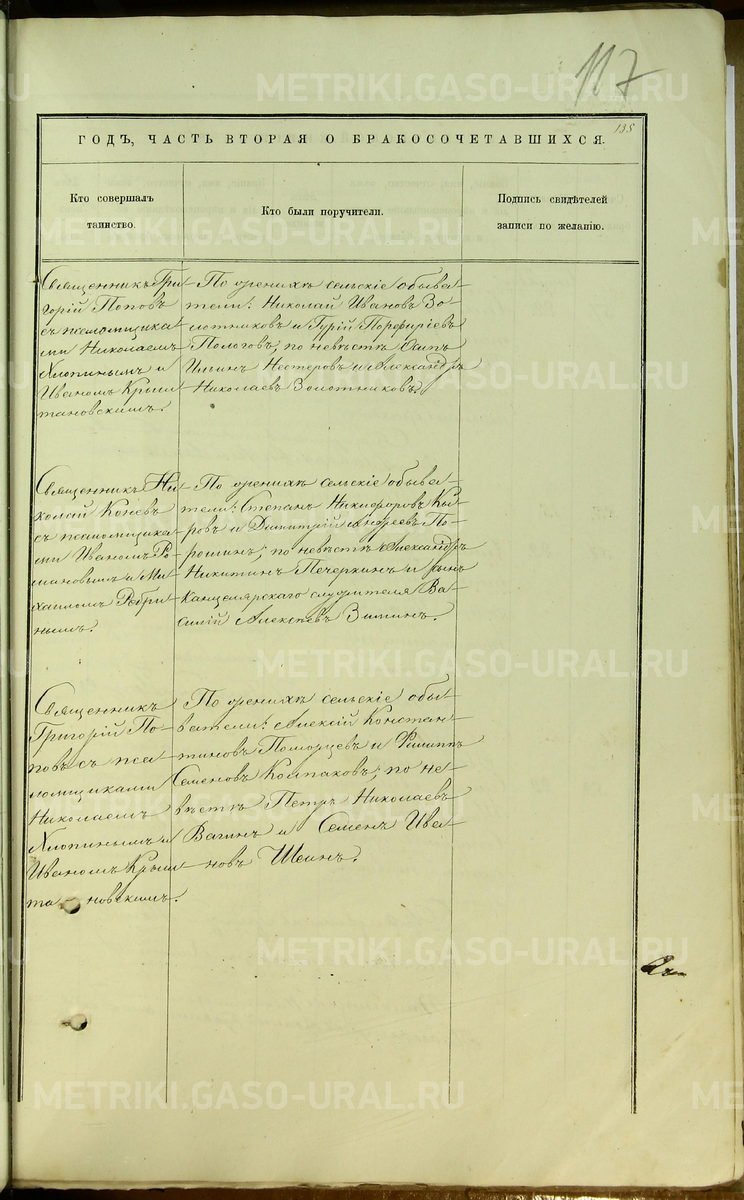 117
135
ГОДЪ, ЧАСТЬ ВТОРАЯ О БРАКОСОЧЕТАВШИХСЯ.
Кто совершалъ
таинство.
Кто были поручители.
Подпись свидѣтелей
записи по желанію.
Священникъ Гри-
горій Поповъ
съ псаломщика-
ми Николаемъ
Хлопинымъ и
Иваномъ Крыш-
тановскимъ.
По женихѣ сельскіе обыва-
тели: Николай Ивановъ Зо-
лотниковъ и Гурій Порфиріевъ
Пологовъ; по невѣстѣ Осипъ
Ильинъ Нестеровъ и Александръ
Николаевъ Золотниковъ.
Священникъ Ни-
колай Коневъ
съ псаломщика-
ми Иваномъ Ро-
мановымъ и Ми-
хаиломъ Ребри-
нымъ.
По женихѣ сельскіе обыва-
тели: Степанъ Никифоровъ Ки-
ровъ и Димитрій Андреевъ По-
рошинъ; по невѣстѣ Александръ
Никитинъ Печеркинъ и сынъ
канцелярскаго служителя Ва-
силій Алексѣевъ Зиминъ.
Священникъ
Григорій По-
повъ съ пса-
ломщиками
Николаемъ
Хлопинымъ и
Иваномъ Крыш-
тановскимъ.
По женихѣ сельскіе обы-
ватели: Алексій Констан-
тиновъ Поморцевъ и Филиппъ
Семеновъ Колпаковъ; по не-
вѣстѣ Петръ Николаевъ
Вагинъ и Семенъ Ива-
новъ Шеинъ.
METRIKI.GASO-URAL.RU